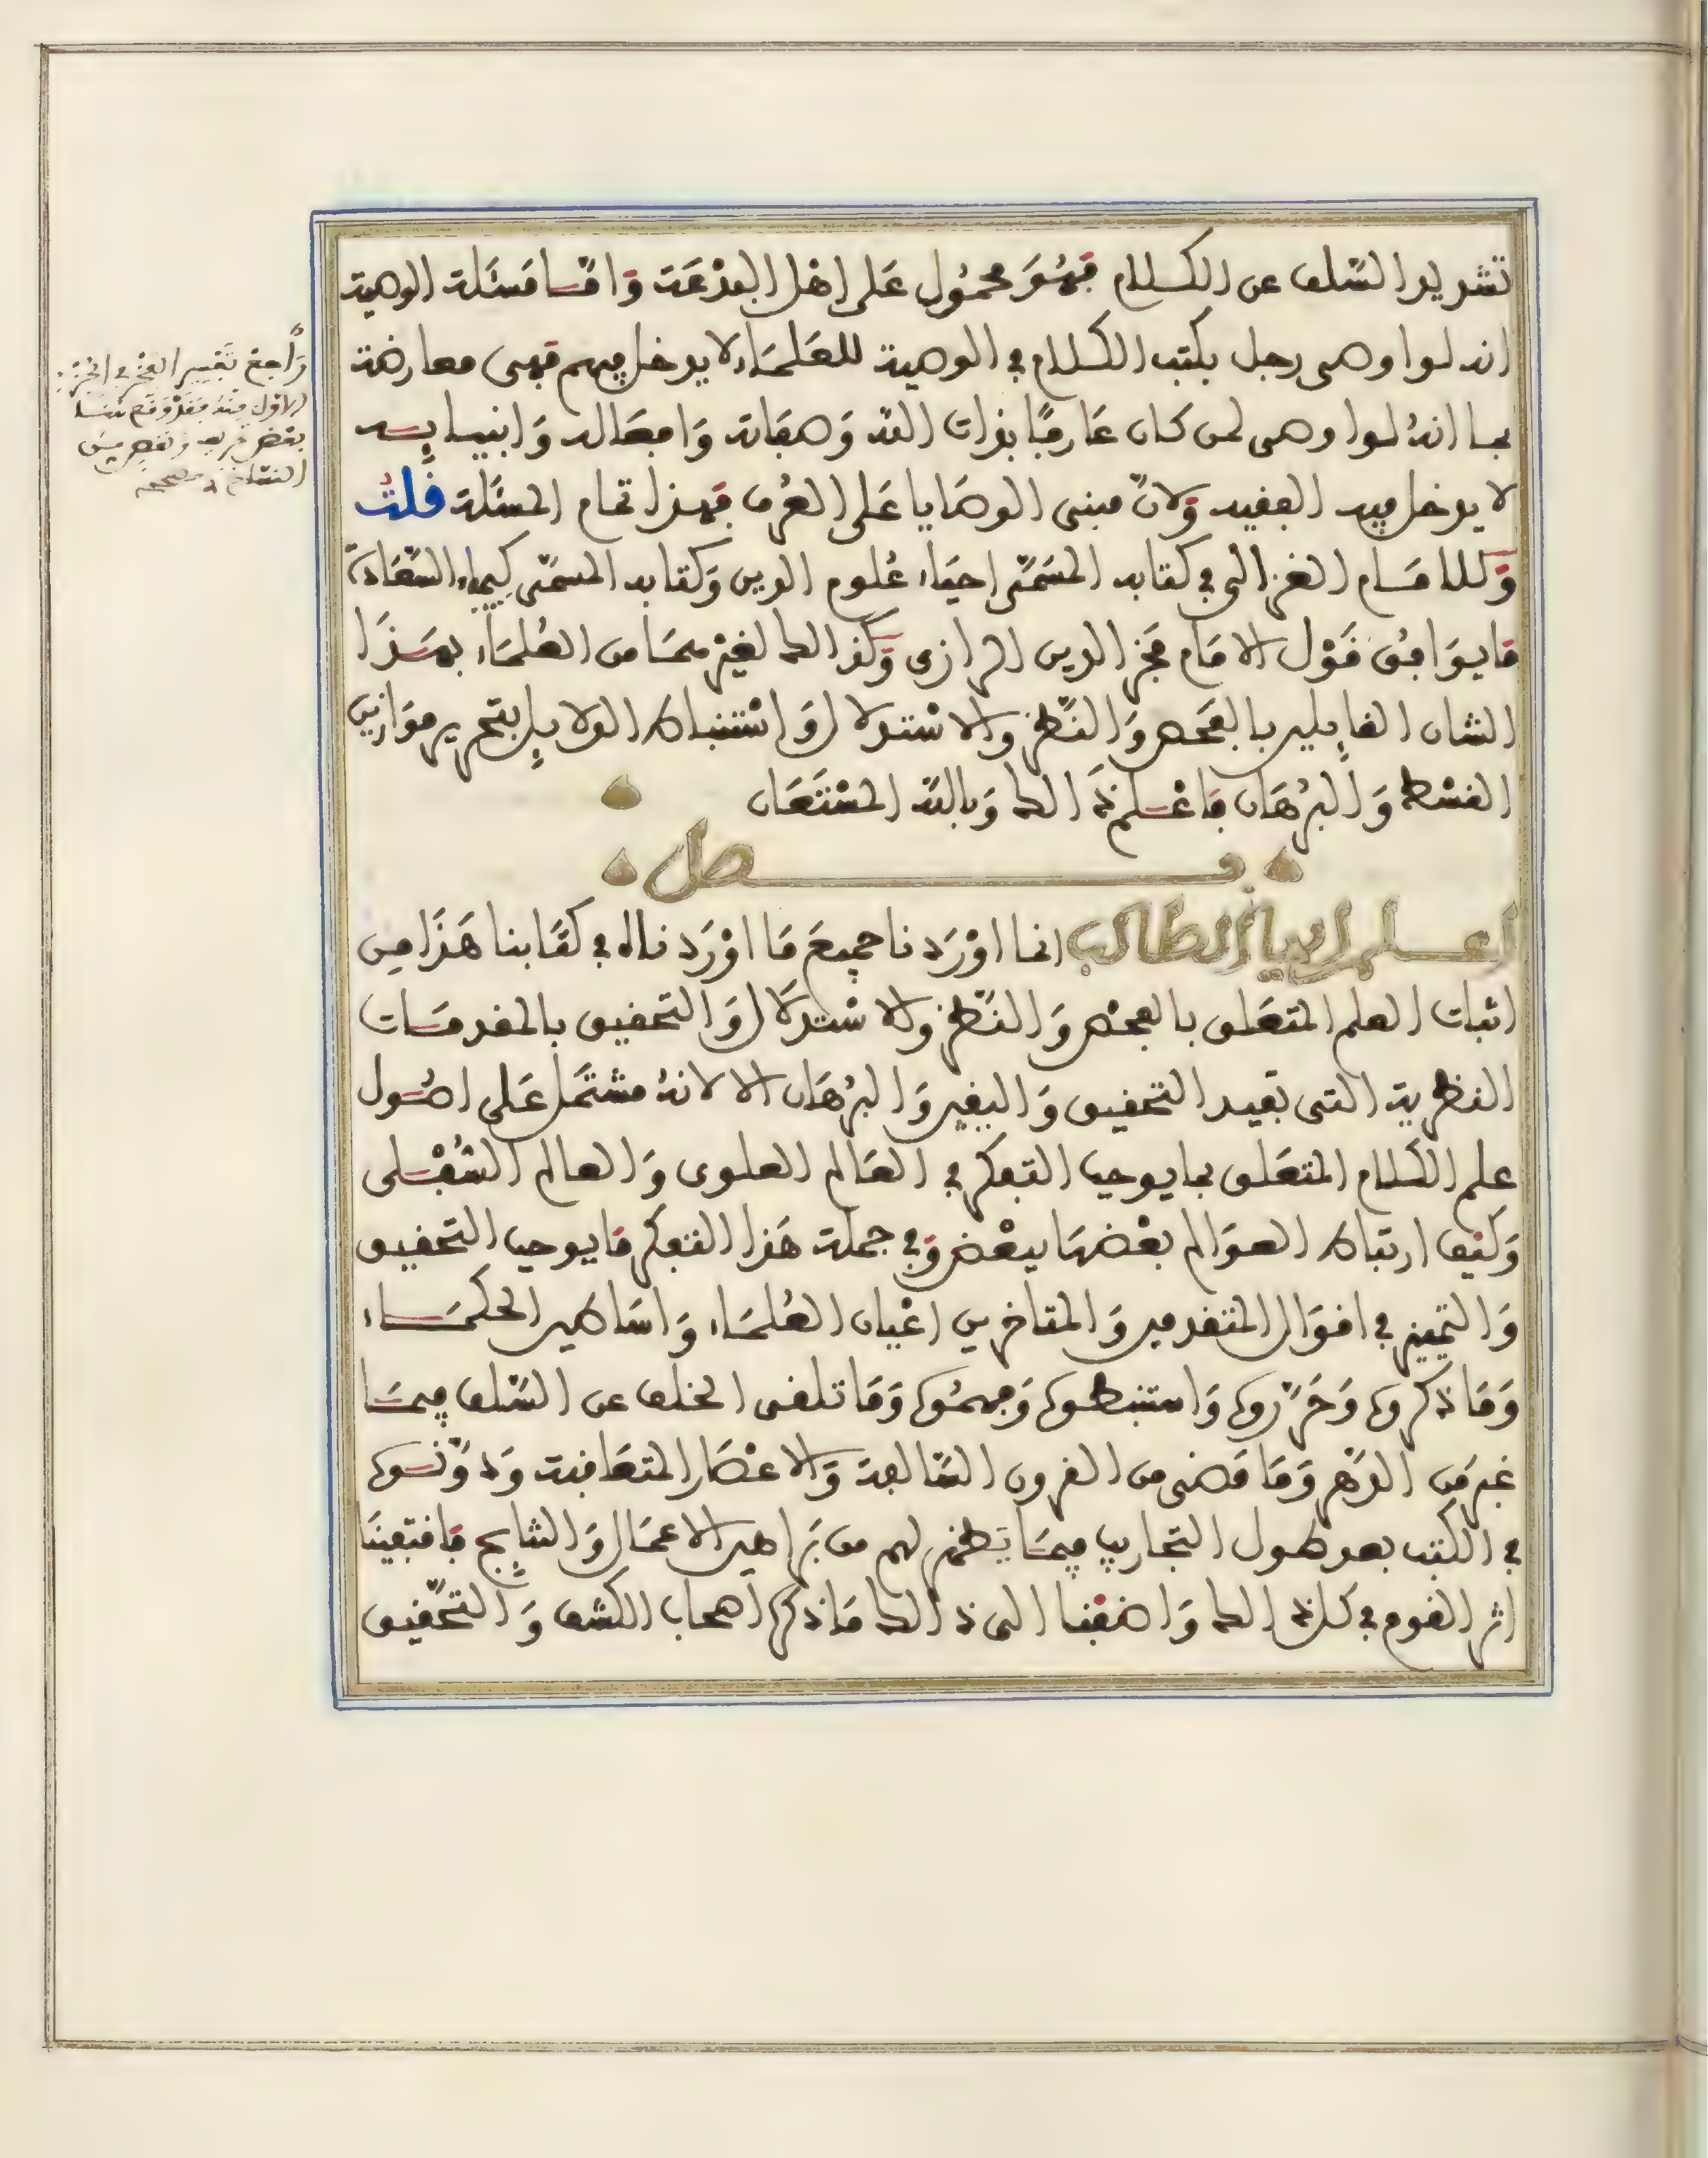 تشديد السلف عن الكلام فهو محمول على اهل البدعة واما مسئلة الوصية
انه لو اوصى رجل بكتب الكلام في الوصية للعلماء لا يدخل فيهم فهى معارضة
بما انه لو اوصى لمن كان عارفا بذات الله وصفاته وافعاله وانبيايه
لا يدخل فيه الفقيه ولان مبنى الوصايا على العرف فهذا تمام المسئلة قلت
وللامام الغزالى في كتابه المسمى احياء علوم الدين وكتابه المسمى كيمياء السعادة
ما يوافق قول الامام فخر الدين الرازى وكذالك لغيرهما من العلماء بهذا
الشان القايلين بالفحص والنظر والاستدلال واستنباط الدلايل بتحرير موازين
القسط والبرهان فاعلم ذالك وبالله المستعان
فصل
اعلم ايها الطالب انما اوردنا جميع ما اوردناه في كتابنا هذا من
اثبات العلم المتعلق بالفحص والنظر والاستدلال والتحقيق بالمقدمات
النظرية التى تفيد التحقيق واليقين والبرهان الا لانه مشتمل على اصول
علم الكلام المتعلق بما يوجب التفكر في العالم العلوى والعالم السفلى
وكيف ارتباط العوالم بعضها ببعض وفي جملة هذا التفكر ما يوجب التحقيق
والتمييز في اقوال المتقدمين والمتاخرين اعيان العلماء واساطير الحكماء
وما ذكروه وحرروه واستنبطوه وفهموه وما تلقى الخلف عن السلف فيما
غبر من الدهر وما مضى من القرون السالفة والاعصار المتعاقبة ودونوه
في الكتب بعد طول التجاريب فيما يظهر لهم من براهين الاعمال والنتايج فاقتفينا
اثر القوم في كل ذالك واضفنا الى ذالك ما ذكره اصحاب الكشف والتحقيق
راجع تفسير الفخر في الجزء
الاول منه فقد وقع هنا
بعض تحريف ونقص من
النساخ مصححه